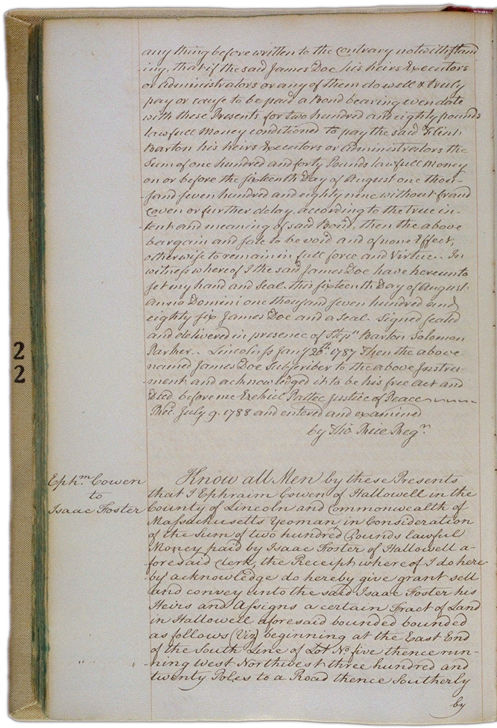 any thing before written to the Contrary notwithstand
ing, that if the said James Doe his heirs Executors
or Administrators or any of them do well & truly
pay or cause to be paid a Bond bearing even date
with these Presents for two hundred and eighty pounds
lawfull Money conditioned to pay the said Flint
Barton his heirs Executors or Administrators the
Sum of one hundred and forty Pounds lawfull Money
on or before the sixteenth Day of August one thou-
sand seven hundred and eighty nine without fraud
Coven or further delay, according to the true in-
tent and meaning of said Bond, then the above
bargain and sale to be void and of none Effect,
otherwise to remain in full force and Virtue. In
witness whereof I the said James Doe have hereunto
set my hand and Seal this sixteenth Day of August
Anno Domini one thousand seven hundred and
eighty six James Doe and a Seal. Signed sealed
and delivered in presence of Stepn Barton Solomon
Parker. Lincoln ss Jany 26th 1787 Then the above
named James Doe Subscriber to the above Instru-
ment and acknowledged it to be his free act and
Deed before me Ezekiel Pattee Justice of Peace
Recd July 9. 1788 and entered and examined
by Tho Rice Regr
22
Ephm Cowen
to
Isaac Foster
Know all Men by these Presents
that I Ephraim Cowen of Hallowell in the
County of Lincoln and Commonwealth of
Massachusetts Yeoman in Consideration
of the Sum of two hundred Pounds lawful
Money paid by Isaac Foster of Hallowell a-
foresaid Clerk, the Receipt whereof I do here
by acknowledge do hereby give grant sell
and convey unto the said Isaac Foster his
Heirs and Assigns a certain Tract of Land
in Hallowell aforesaid bounded bounded
as follows (Viz) beginning at the East End
of the South Line of Lot No five thence run-
ning West Northwest three hundred and
twenty Poles to a Road thence Southerly
by